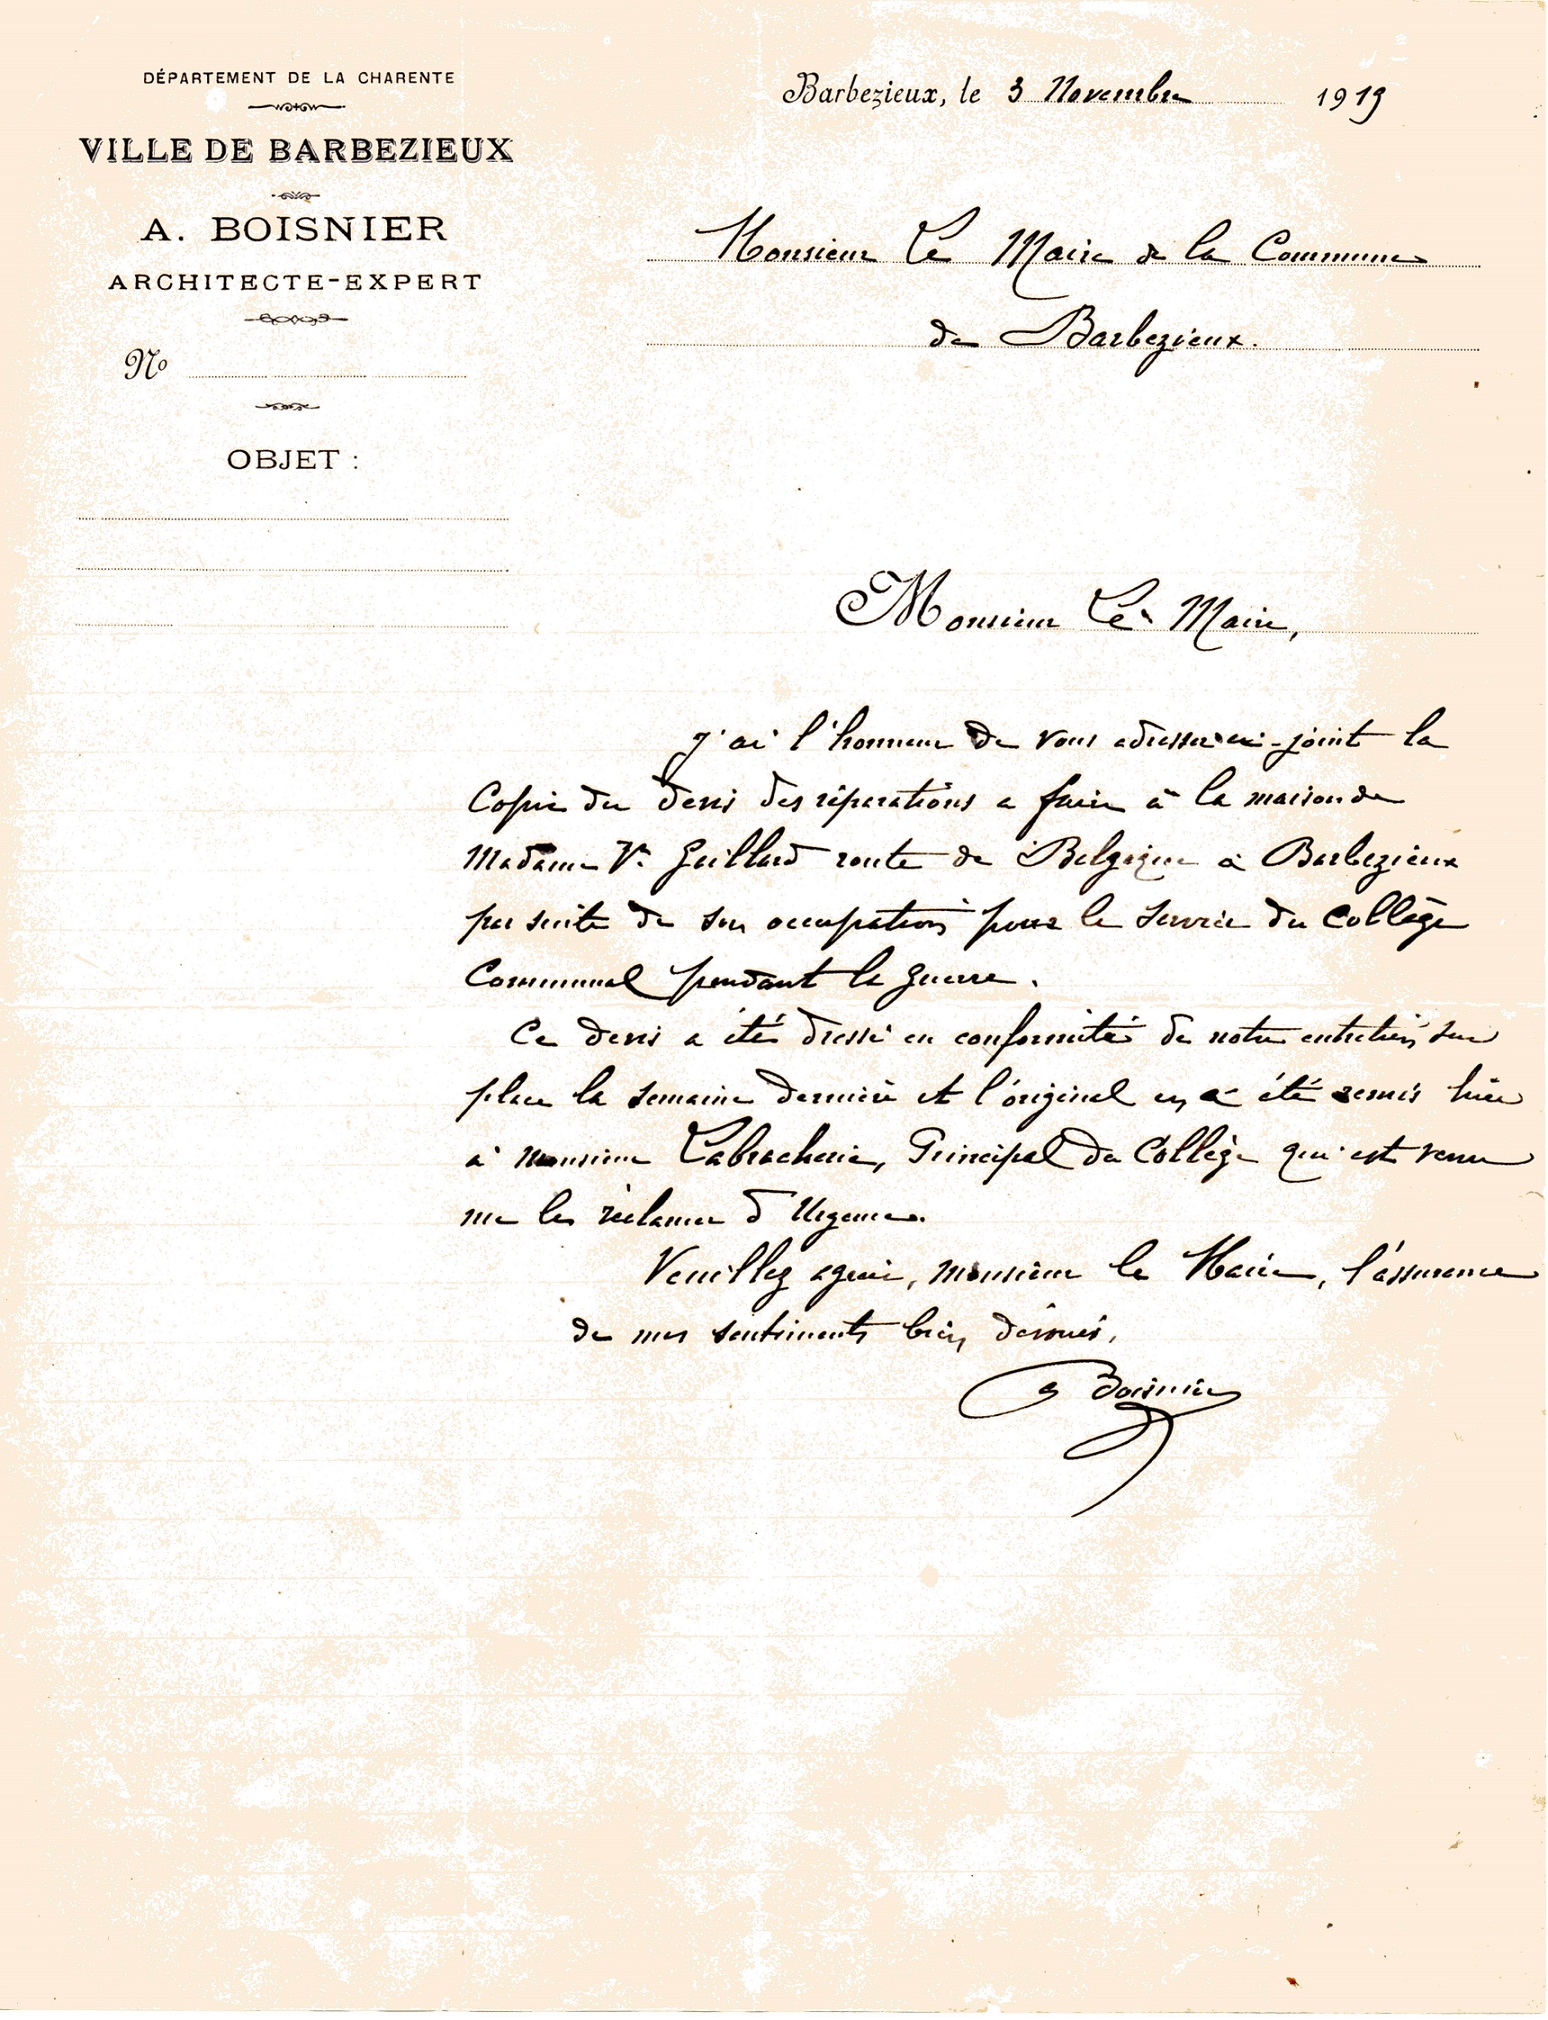 DÉPARTEMENT DE LA CHARENTE
VILLE DE BARBEZIEUX
A. BOISNIER
ARCHITECTE-EXPERT
No
OBJET :
Barbezieux, le 3 Novembre 1919
Monsieur Le Maire de la Commune
de Barbezieux.
Monsieur Le Maire,
J'ai l'honneur de vous adresser ci-joint la
Copie du devis des réparations a faire à la maison de
Madame Vve Guillard route de Belgique à Barbezieux
par suite de son occupation pour le service du Collège
Communal pendant la guerre.
Ce devis a été dressé en conformité de notre entretien sur
place la semaine dernière et l'original en a été remis hier
à monsieur Labracherie, Principal du Collège qui est venu
me les réclamer d'Urgence.
Veuillez agréer, monsieur le Maire, l'assurance
de mes sentiments bien dévoués.
A Boisnier